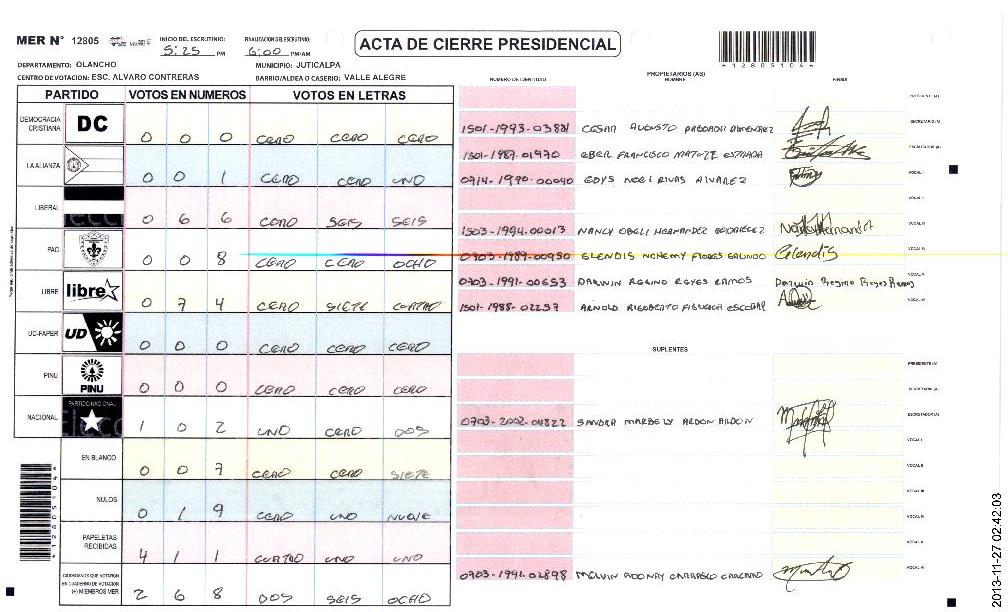 MER N° 12805 INICIO DEL ESCRUTINIO: 5:25 PM FINALIZACION DEL ESCRUTINIO: 6:00 PM/AM
ACTA DE CIERRE PRESIDENCIAL
*12805104*
DEPARTAMENTO: OLANCHO MUNICIPIO: JUTICALPA
CENTRO DE VOTACION: ESC. ALVARO CONTRERAS BARRIO/ALDEA O CASERIO: VALLE ALEGRE
PARTIDO VOTOS EN NUMEROS VOTOS EN LETRAS
DEMOCRACIA CRISTIANA DC 0 0 0 CERO CERO CERO
LA ALIANZA 0 0 1 CERO CERO UNO
LIBERAL 0 6 6 CERO SEIS SEIS
PAC 0 0 8 CERO CERO OCHO
LIBRE libre 0 7 4 CERO SIETE CUATRO
UD-FAPER UD 0 0 0 CERO CERO CERO
PINU PINU 0 0 0 CERO CERO CERO
NACIONAL PARTIDO NACIONAL 1 0 2 UNO CERO DOS
EN BLANCO 0 0 7 CERO CERO SIETE
NULOS 0 1 9 CERO UNO NUEVE
PAPELETAS RECIBIDAS 4 1 1 CUATRO UNO UNO
CIUDADANOS QUE VOTARON EN CUADERNO DE VOTACION (+) MIEMBROS MER 2 6 8 DOS SEIS OCHO
PROPIETARIOS (AS)
NUMERO DE IDENTIDAD NOMBRE FIRMA
PRESIDENTE (A)
1501-1993-03881 CESAR AUGUSTO SECRETARIO (A)
1501-1987-01970 EBER FRANCISCO MATUTE ESTRADA ESCRUTADOR (A)
0714-1990-00040 EDYS NOEL RIVAS ALVAREZ VOCAL I
VOCAL II
1503-1994-00013 NANCY OBELI HERNANDEZ VOCAL III
0703-1989-00950 GLENDIS NOHEMY Glendis VOCAL IV
0703-1991-00653 DARWIN REGINO REYES RAMOS Darwin Regino Reyes Ramos VOCAL V
1501-1988-02257 ARNOLD RIGOBERTO FIGUEROA ESCOBAR VOCAL VI
SUPLENTES
PRESIDENTE (A)
SECRETARIO (A)
0703-2002-04822 SANDRA MARBELY ARDON ARDON ESCRUTADOR (A)
VOCAL I
VOCAL II
VOCAL III
VOCAL IV
VOCAL V
0703-1991-02898 MELVIN ADONAY CARRASCO VOCAL VI
*12805104*
2013-11-27 02:42:03